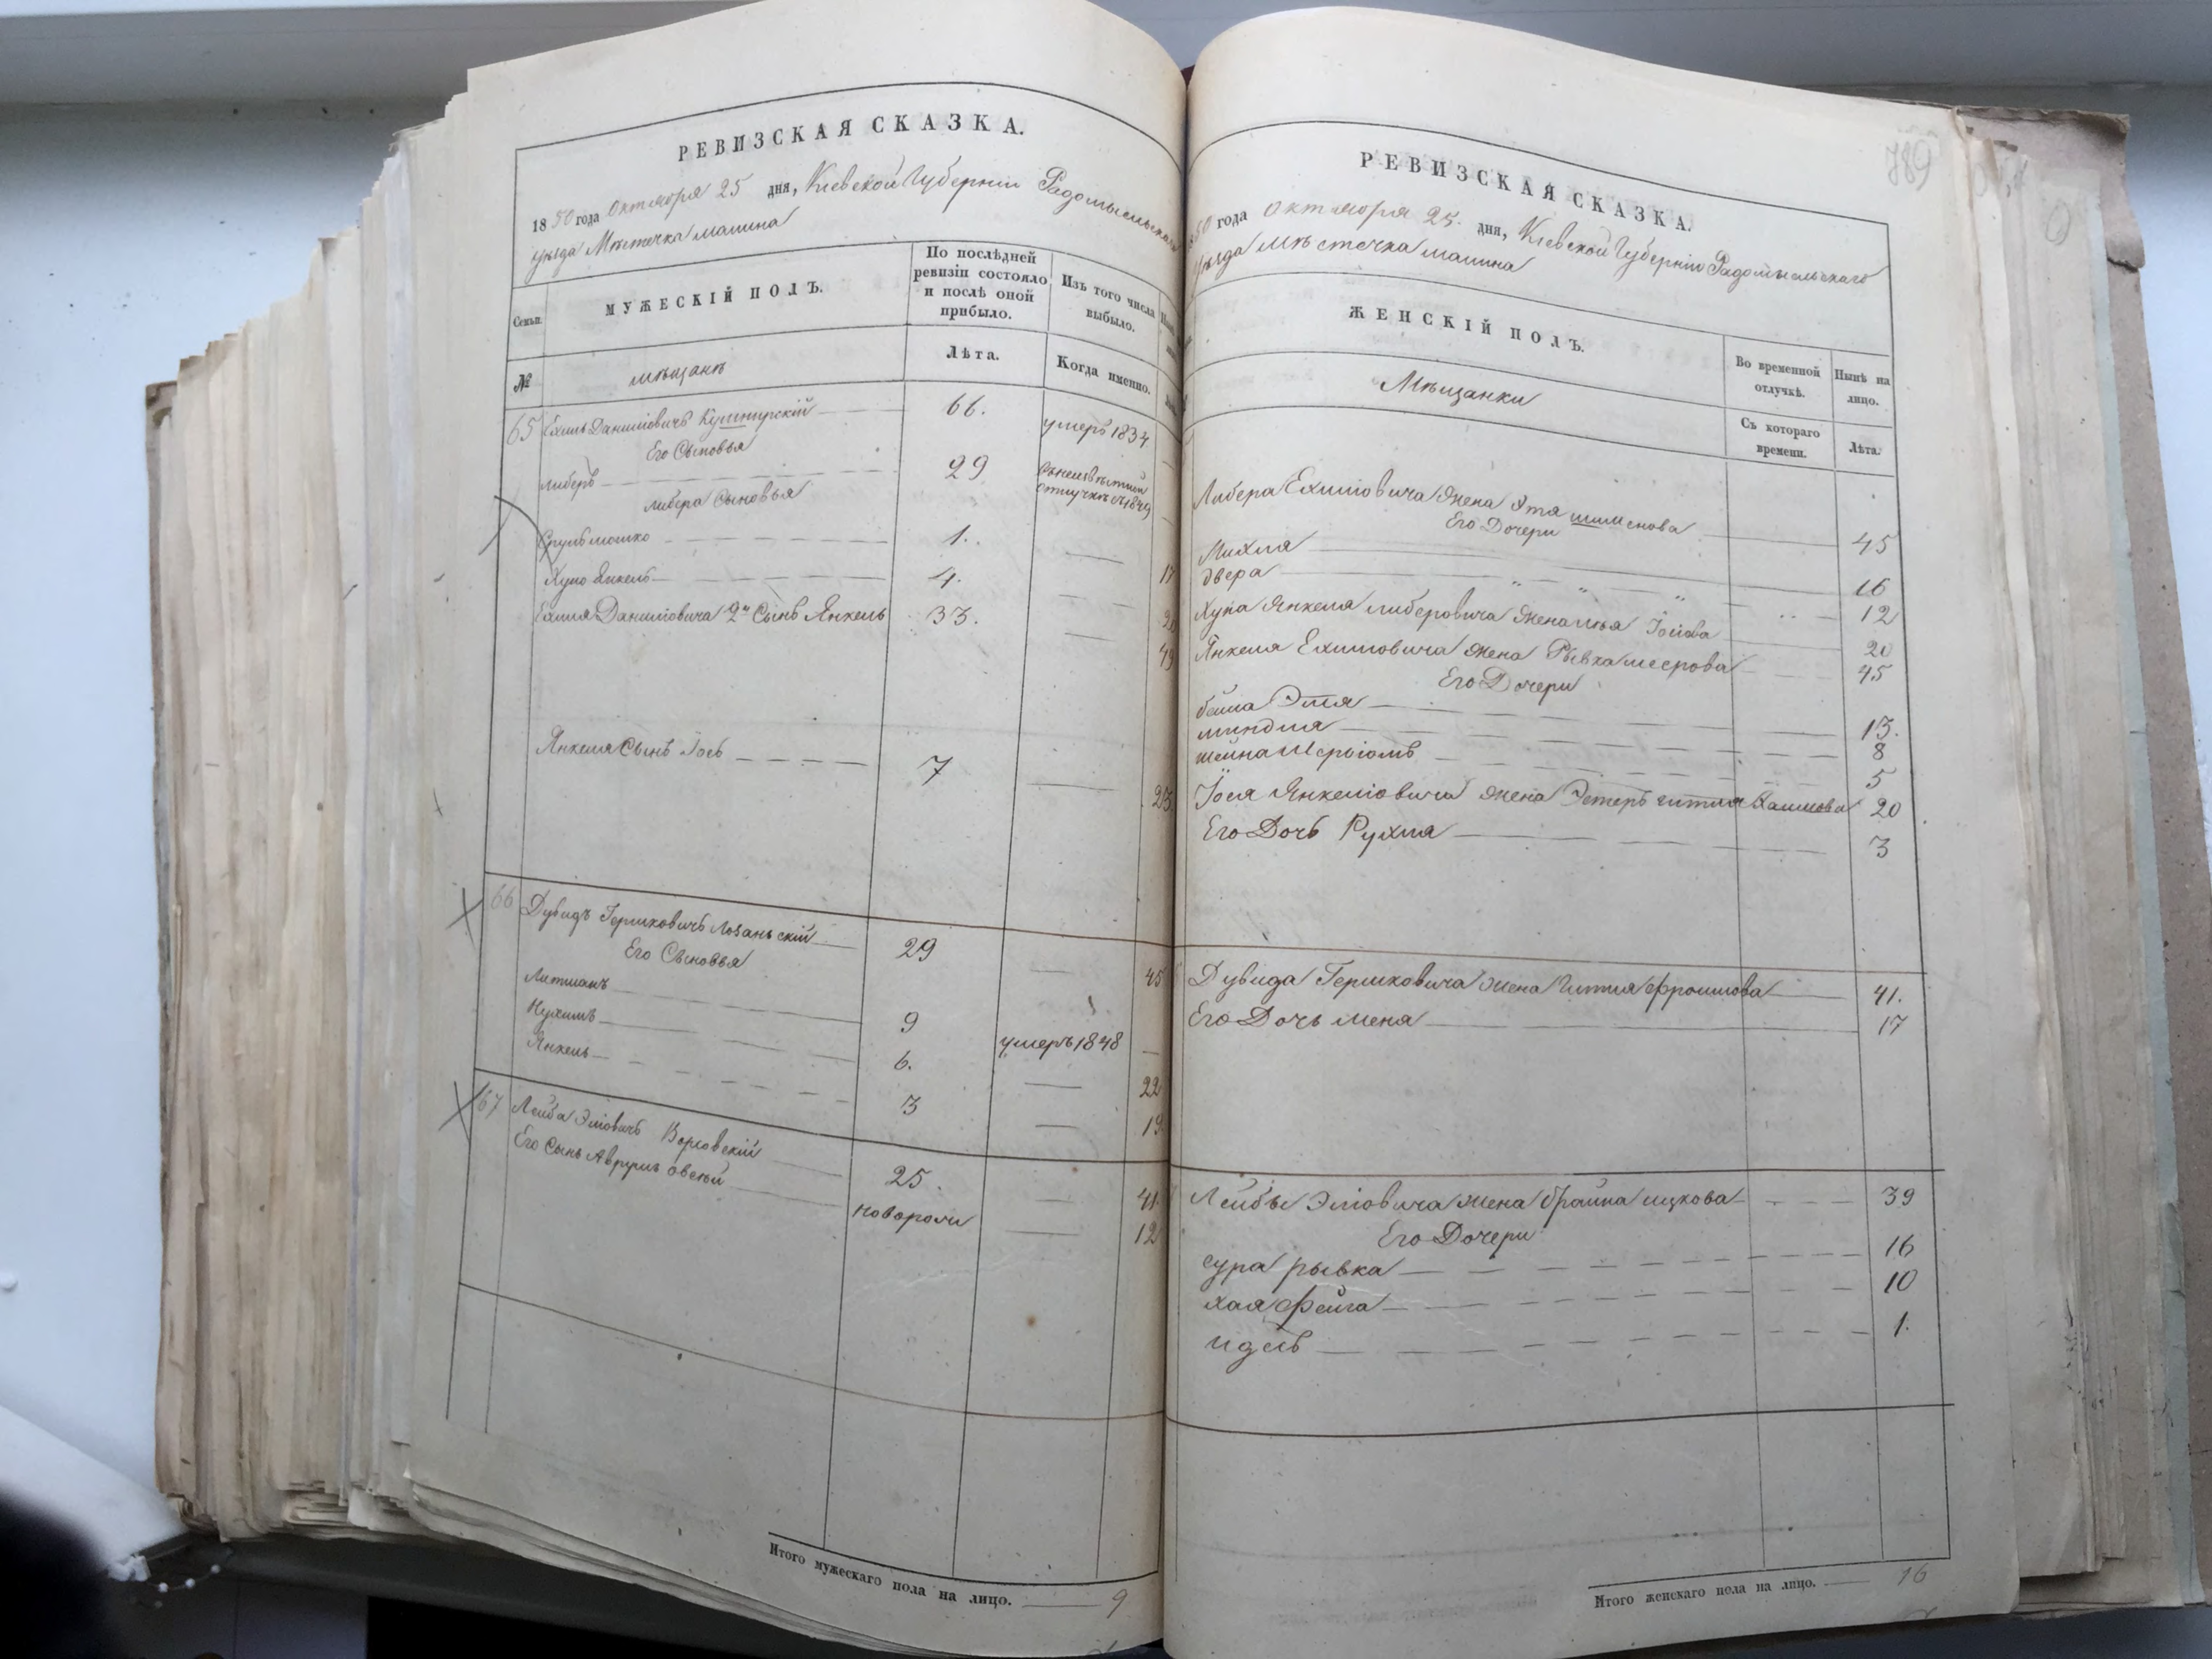 РЕВИЗСКАЯ СКАЗКА.
1850 года Октября 25 дня, Кіевской Губерніи Радомысльскаго
уѣзда Мѣстечка Малина
Семьи.
МУЖЕСКІЙ ПОЛЪ.
По послѣдней ревизіи состояло и послѣ оной прибыло.
Изъ того числа выбыло.
№
мѣщанѣ
Лѣта.
Когда именно.
65 Даниловичъ Кушнирскій 66. умеръ 1834
Его Сыновья
Либеръ 29 отлучкѣ съ 1849
Либера Сыновья
Сруль мошко 1. 17
Хуно Янкель 4.
Даниловича 2й Сынъ Янкель 33. 49
Янкеля Сынъ Іось 7 23
66 Дувидъ Гершковичъ Лозаньскій 29 45
Его Сыновья
Литманъ 9 умеръ 1848
Нухимъ 6. 22
Янкель 3 19
67 Лейба Эліовичъ 25. 41
Его Сынъ Аврумъ овсѣй 12
Итого мужескаго пола на лицо. 9
789
РЕВИЗСКАЯ СКАЗКА.
1850 года Октября 25. дня, Кіевской Губерніи Радомысльскаго
уѣзда Мѣстечка малина
ЖЕНСКІЙ ПОЛЪ.
Во временной отлучкѣ.
Нынѣ на лицо.
Мѣщанки
Съ котораго времени.
Лѣта.
Либера жена Этя 45
Его Дочери
Михля 16
двера 12
Хуна Янкеля либеровича жена 20
Янкеля жена Рывка меерова 45
Его Дочери
бейла Этя 13.
миндля 8
шейна 5
Іося Янкеліовича жена Эстеръ гитля Хаимова 20
Его Дочь Рухля 3
Дувида Гершковича жена Гитля фроимова 41.
Его Дочь меня 17
Лейбы Эліовича жена брайна ицкова 39
Его Дочери
сура рывка 16
хая фейга 10
идесъ 1.
Итого женскаго пола на лицо. 16